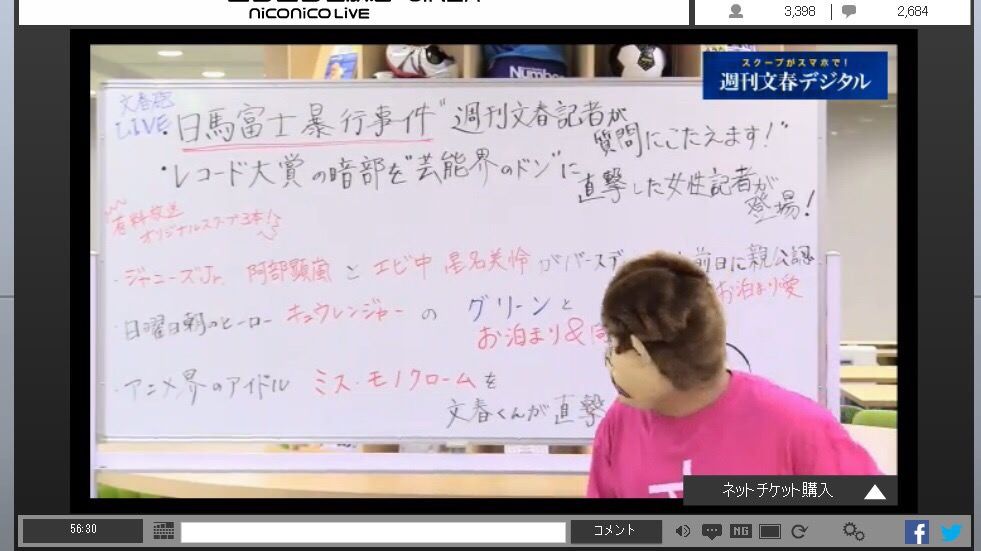 niconico LiVE
3,398
2,684
スクープがスマホで!
週刊文春デジタル
Number
文春砲
LIVE
・日馬富士暴行事件"週刊文春記者が
質問にこたえます!"
・レコード大賞の暗部を"芸能界のドン"に
直撃した女性記者が
登場!
有料放送
オリジナルスクープ3本!
・ジャニーズJr. 阿部顕嵐とエビ中 星名美怜がバースデ
前日に親公認
お泊まり愛
・日曜日朝のヒーロー キュウレンジャーの グリーンと
お泊まり&
・アニメ界のアイドル ミス・モノクロームを
文春くんが直撃
ネットチケット購入
56:30
コメント
NG